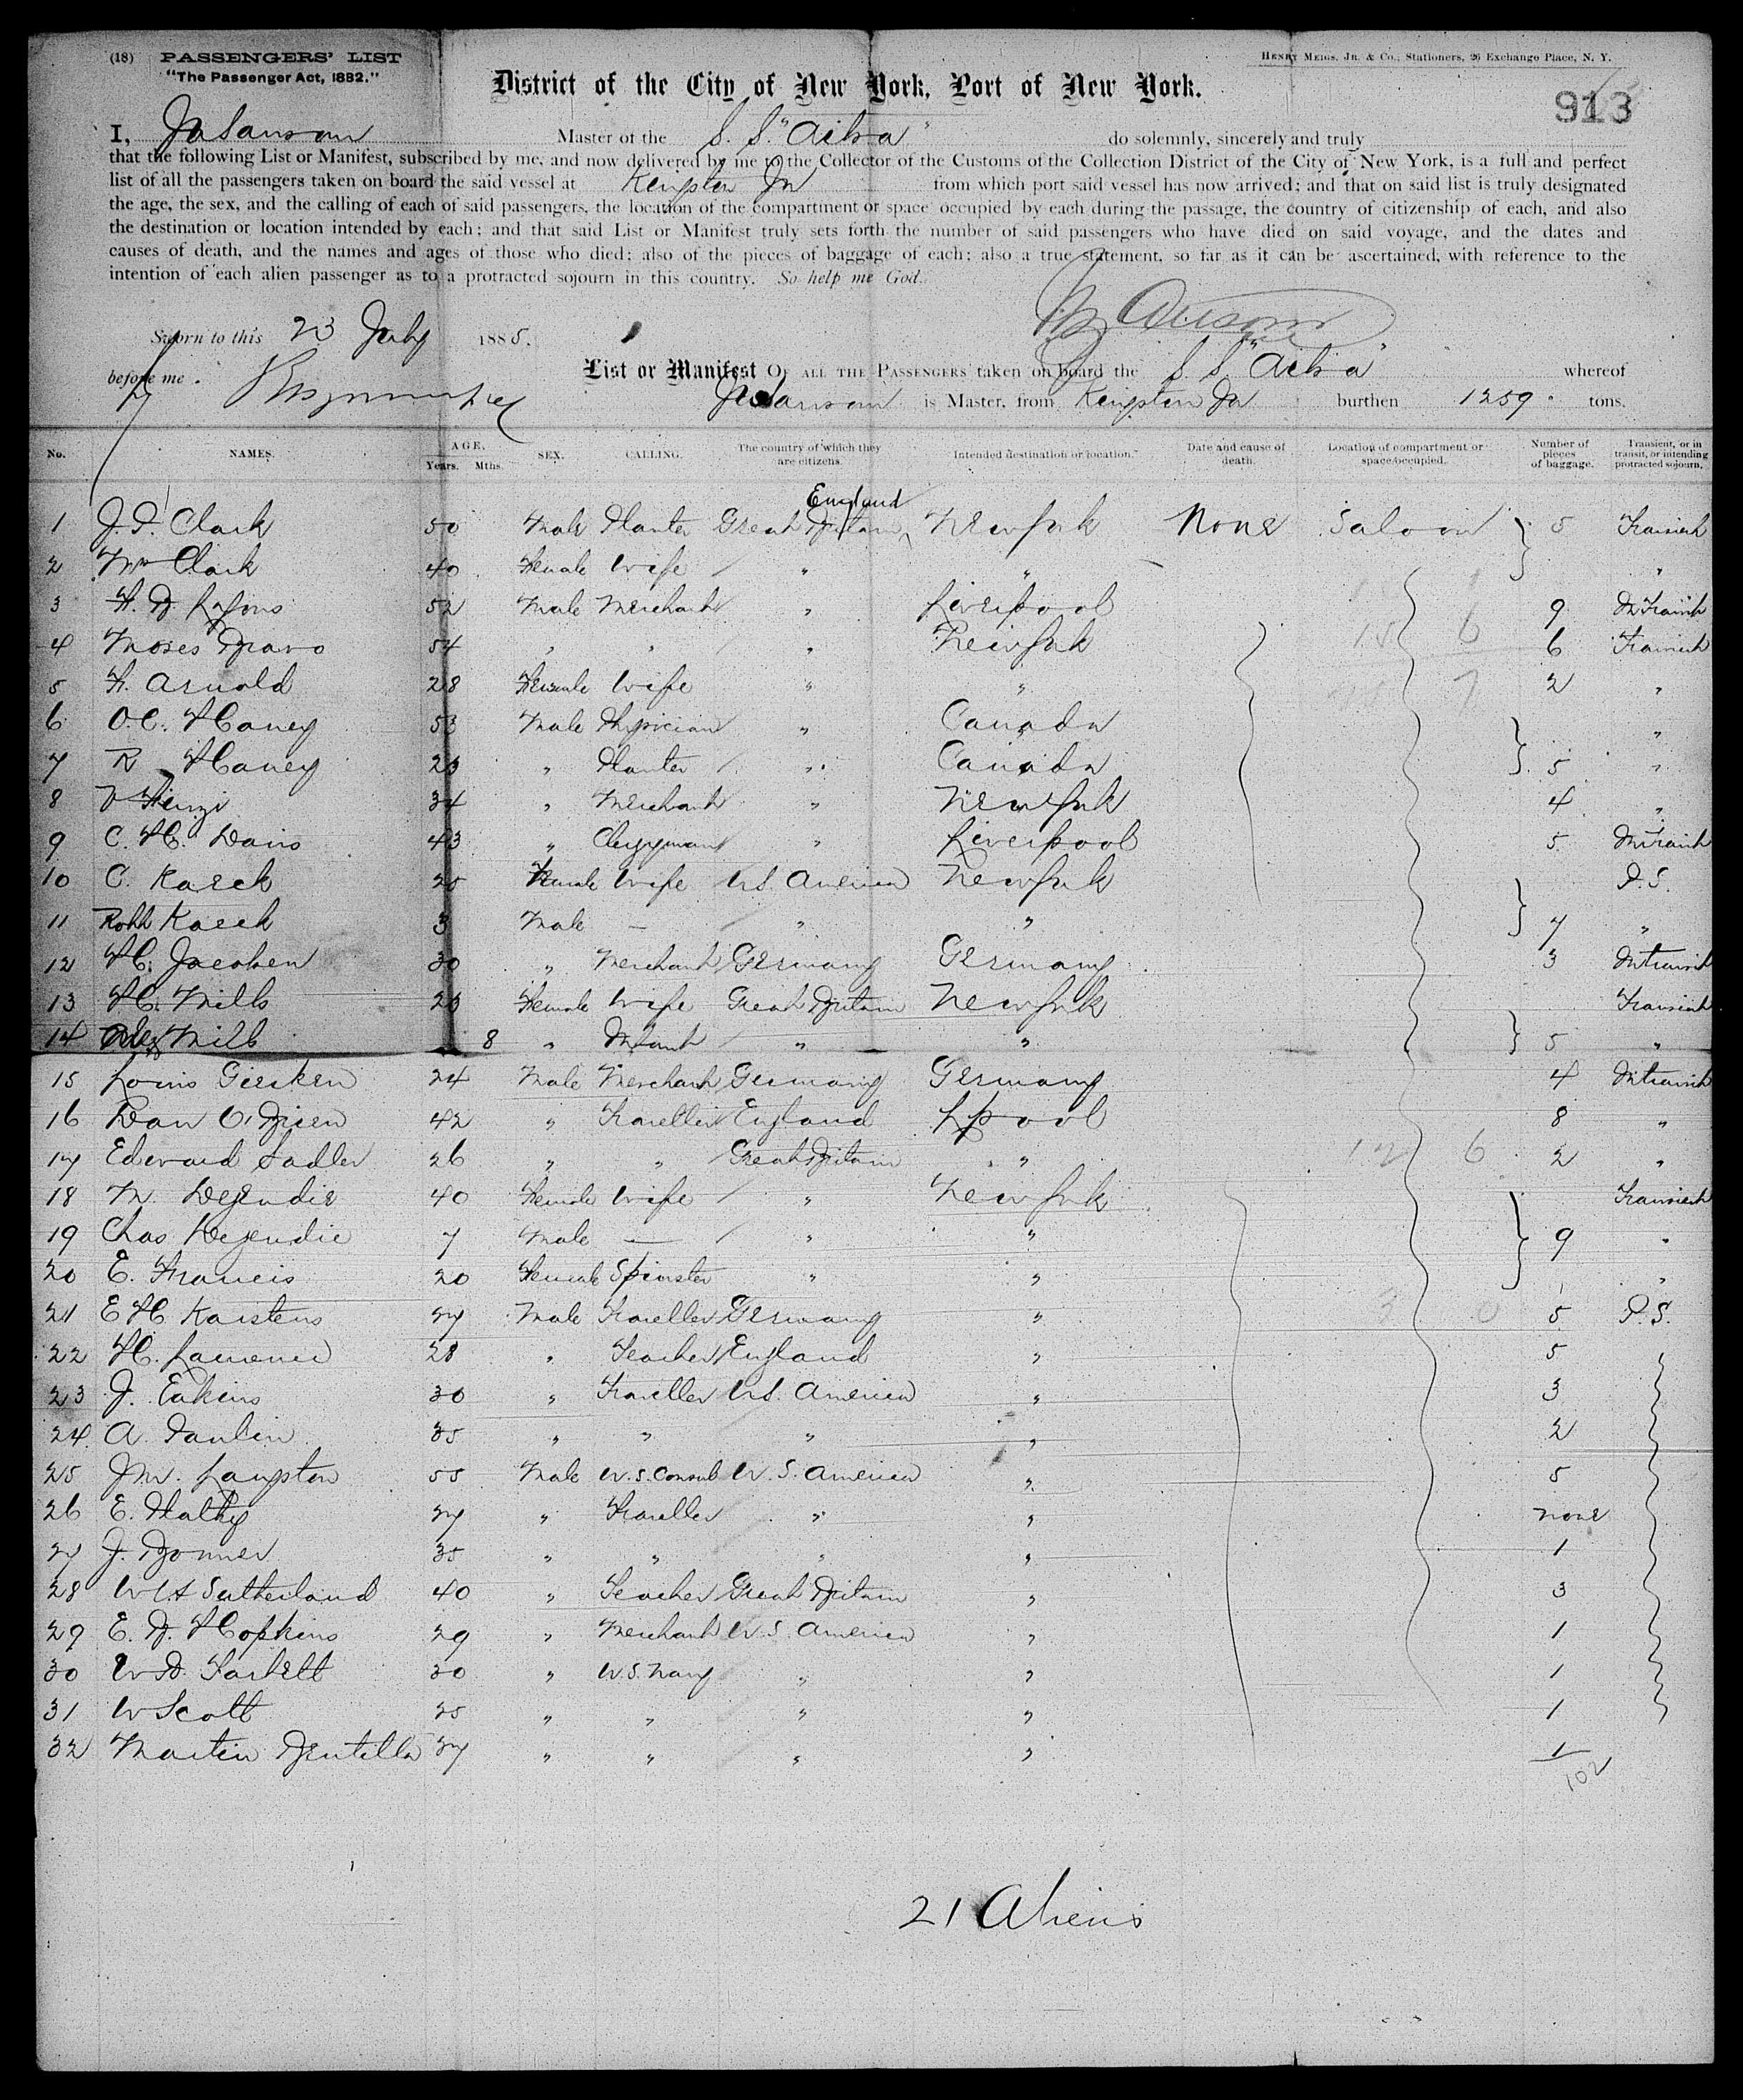 (18) PASSENGERS' LIST
"The Passenger Act, 1882."
HENRY MEIGS, JR. & CO., Stationers, 26 Exchange Place, N. Y.
District of the City of New York, Port of New York.
913
I, Master of the S. S. "Ailsa" do solemnly, sincerely and truly
that the following List or Manifest, subscribed by me, and now delivered by me to the Collector of the Customs of the Collection District of the City of New York, is a full and perfect
list of all the passengers taken on board the said vessel at Kingston Ja from which port said vessel has now arrived; and that on said list is truly designated
the age, the sex, and the calling of each of said passengers, the location of the compartment or space occupied by each during the passage, the country of citizenship of each, and also
the destination or location intended by each; and that said List or Manifest truly sets forth the number of said passengers who have died on said voyage, and the dates and
causes of death, and the names and ages of those who died; also of the pieces of baggage of each; also a true statement, so far as it can be ascertained, with reference to the
intention of each alien passenger as to a protracted sojourn in this country. So help me God.
Sworn to this 23 July 1885.
before me
List or Manifest OF ALL THE PASSENGERS taken on board the S. S. "Ailsa" whereof
is Master, from Kingston Ja burthen 1259 tons.
No. NAMES. AGE. Years. Mths. SEX. CALLING. The country of which they are citizens. Intended destination or location. Date and cause of death. Location of compartment or space occupied. Number of pieces of baggage. Transient, or in transit, or intending protracted sojourn.
England
1 Clark 50 Male Planter Great Britain New York None Saloon 5 Transient
2 Clark 40 Female Wife " " "
3 Lyons 52 Male Merchant " Liverpool 9 In Transit
4 Moses Bravo 54 " " " New York 6 Transient
5 Arnold 28 Female Wife " " 2 "
6 O.C. Haney Male Physician " Canada "
7 R Haney " Planter " Canada 5 "
8 34 " Merchant " New York 4 "
9 C. H. Davis 43 " Clergyman " Liverpool 5 In Transit
10 C. Karck 25 Female Wife U.S. America New York P.S.
11 Robt Karck 3 Male — " " 7 "
12 H. Jacobsen 30 " Merchant Germany Germany 3 In transit
13 H. Mills Female Wife Great Britain New York Transient
14 Mills 8 " Infant " " 5 "
15 Louis Giesken 24 Male Merchant Germany Germany 4 In transit
16 Dan O'Brien 42 " Traveller England L'pool 8 "
17 Edward Sadler 26 " " Great Britain " 2 "
18 M. DeJendie 40 Female Wife " New York Transient
19 Chas DeJendie 7 Male — " " 9 "
20 E. Francis 20 Female Spinster " " "
21 E H Karstens 27 Male Traveller Germany " 5 P.S.
22 H. 28 " Teacher England " 5
23 J. Eakins 30 " Traveller U.S. America " 3
24 A. 35 " " " " 2
25 J.M. Langston 55 Male U.S. Consul U.S. America " 5
26 E. 27 " Traveller " " none
27 J. 35 " " " " 1
28 Sutherland 40 " Teacher Great Britain " 3
29 E. B. Hopkins 29 " Merchant U.S. America " 1
30 30 " U.S. Navy " " 1
31 W Scott 25 " " " " 1
32 Martin 37 " " " " 1
102
21 Aliens